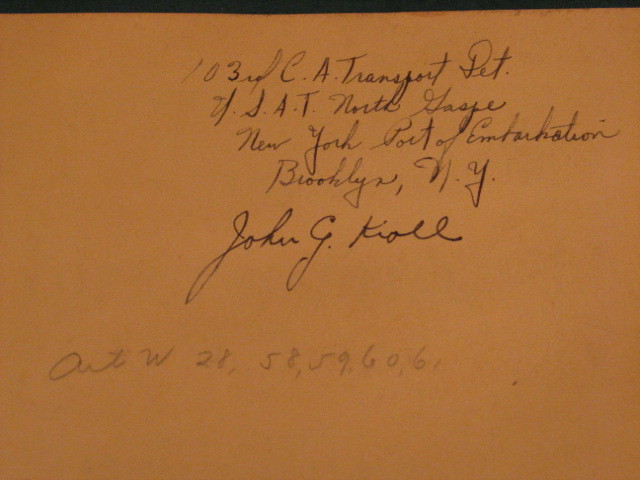 103rd C. A. Transport Det.
U. S. A. T. North Gaspe
New York Port of Embarkation
Brooklyn, N. Y.
John G. Kroll
W 28, 58, 59, 60, 6